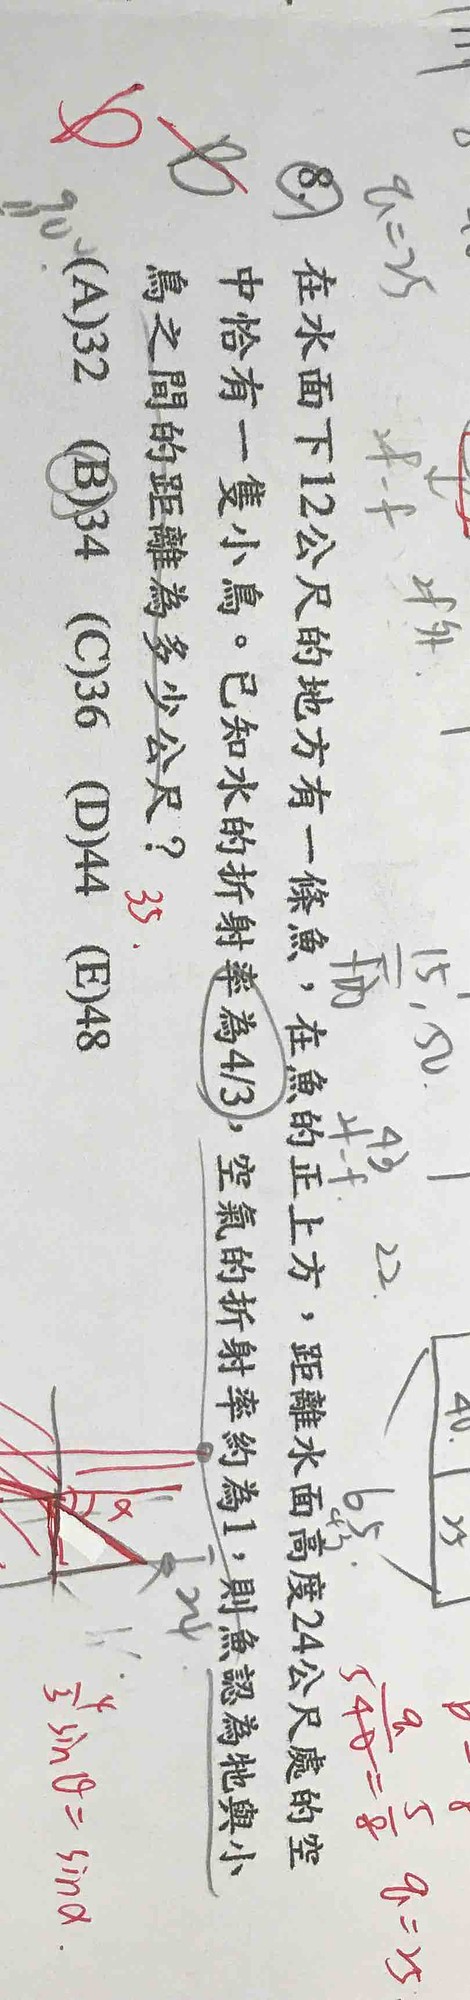 8. 在水面下12公尺的地方有一條魚，在魚的正上方，距離水面高度24公尺處的空
中恰有一隻小鳥。已知水的折射率為4/3，空氣的折射率約為1，則魚認為牠與小
鳥之間的距離為多少公尺？
35.
(A)32 (B)34 (C)36 (D)44 (E)48
q=25
2f-f
2f外
15, 50.
43
2f-f.
22.
65
40.
25
q=25
α
24
4/3 sinθ = sinα.